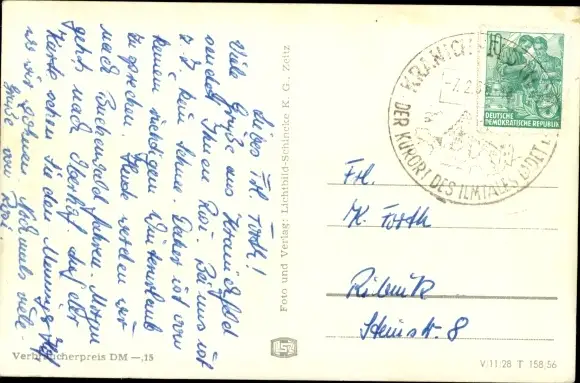 Liebes Frl. Forth!
Viele Grüße aus Kranichfeld
sendet Ihnen Rosi. Bei uns ist
z.Z. kein Schnee. Daher ist von
keinem richtigen Winterurlaub
zu sprechen. Heute werden wir
nach Buchenwald fahren. Morgen
geht's nach Oberhof. Auf der
Karte sehen Sie den
wo wir wohnen. Nochmals viele
Grüße von Rosi.
Foto und Verlag: Lichtbild-Schincke K. G., Zeitz
Verbraucherpreis DM —,15
KRANICHFELD
DER KURORT DES ILMTALES LÄDT EIN
10
DEUTSCHE
DEMOKRATISCHE REPUBLIK
Frl.
K. Forth
Ribnitz
Steinstr. 8
V/11/28 T 158,56